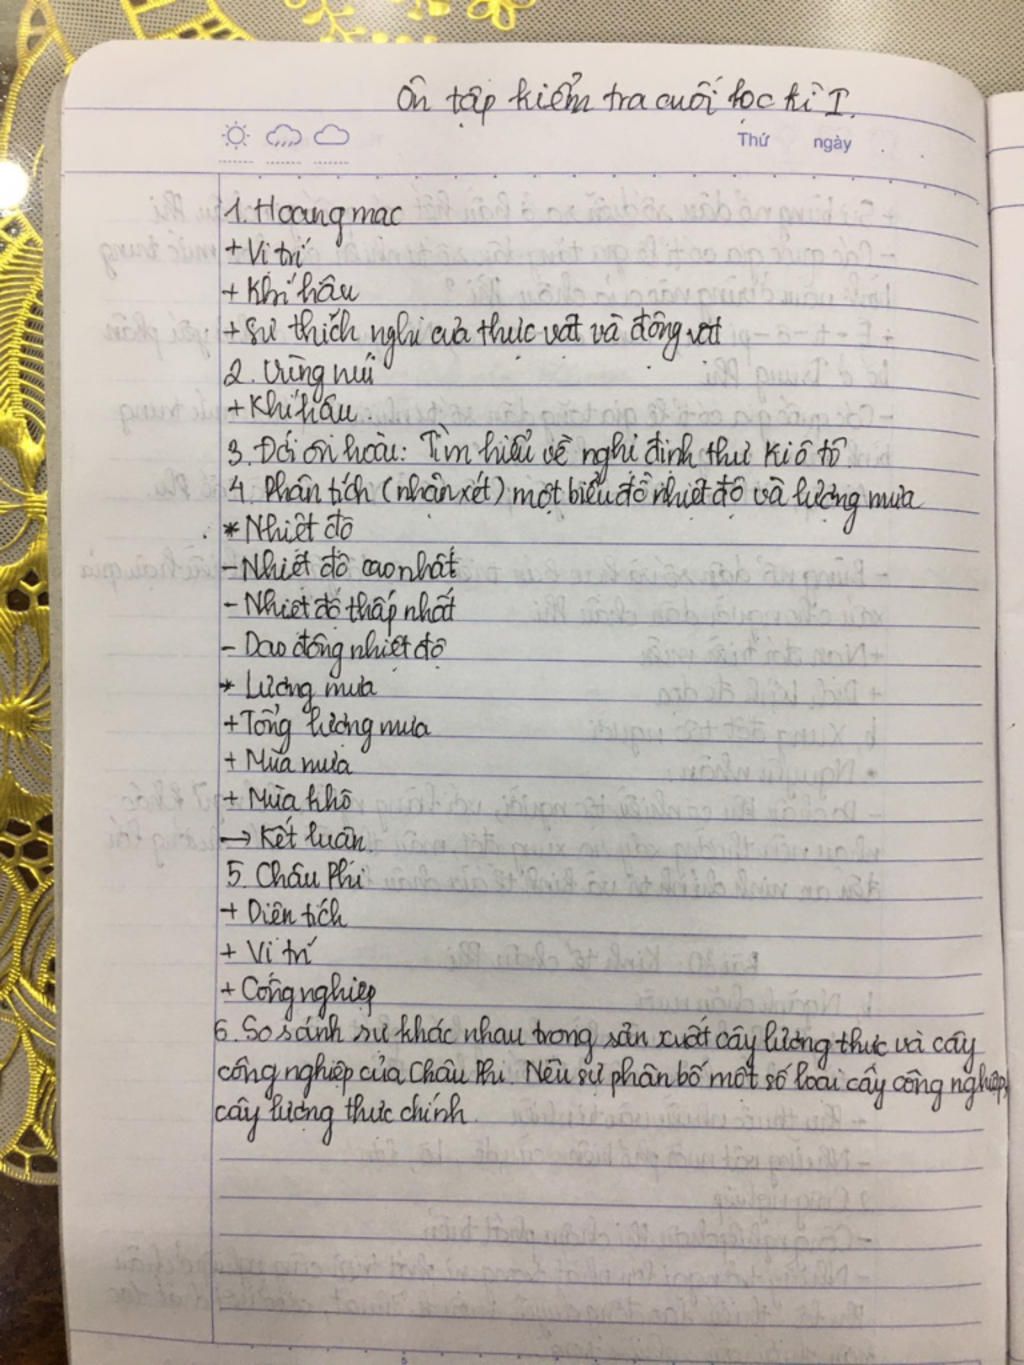 Ôn tập kiểm tra cuối học kì I.
Thứ ngày
1. Hoang mạc
+ Vị trí
+ Khí hậu
+ Sự thích nghi của thực vật và động vật
2. Vùng núi
+ Khí hậu
3. Đới ôn hòa: Tìm hiểu về nghị định thư Ki ô tô.
4. Phân tích (nhận xét) một biểu đồ nhiệt độ và lượng mưa
* Nhiệt độ
- Nhiệt độ cao nhất
- Nhiệt độ thấp nhất
- Dao động nhiệt độ
* Lượng mưa
+ Tổng lượng mưa
+ Mùa mưa
+ Mùa khô
→ Kết luận.
5. Châu Phi
+ Diện tích
+ Vị trí
+ Công nghiệp
6. So sánh sự khác nhau trong sản xuất cây lương thực và cây
công nghiệp của Châu Phi. Nêu sự phân bố một số loại cây công nghiệp,
cây lương thực chính.